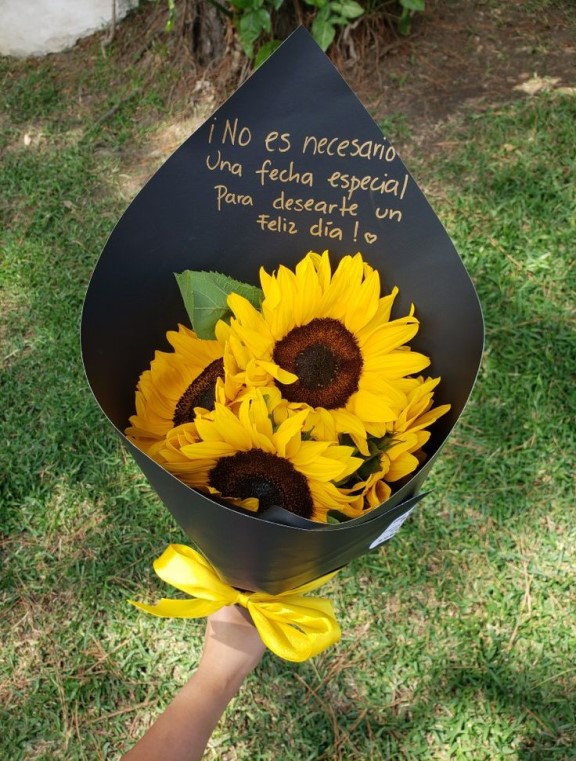 ¡No es necesario
Una fecha especial
Para desearte un
Feliz día!♡